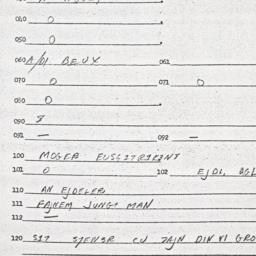 040 0
050 0
060 A/DI BEUX 061
070 0 071 0
080 0
090 8
091 — 092 —
100 MOGER
101 0 102 EJDI,
110 AN EJDELER
111 FAJNEM JUNGT MAN
112 —
120 SIT SJENSR CU ZAJN DIN VI GRO